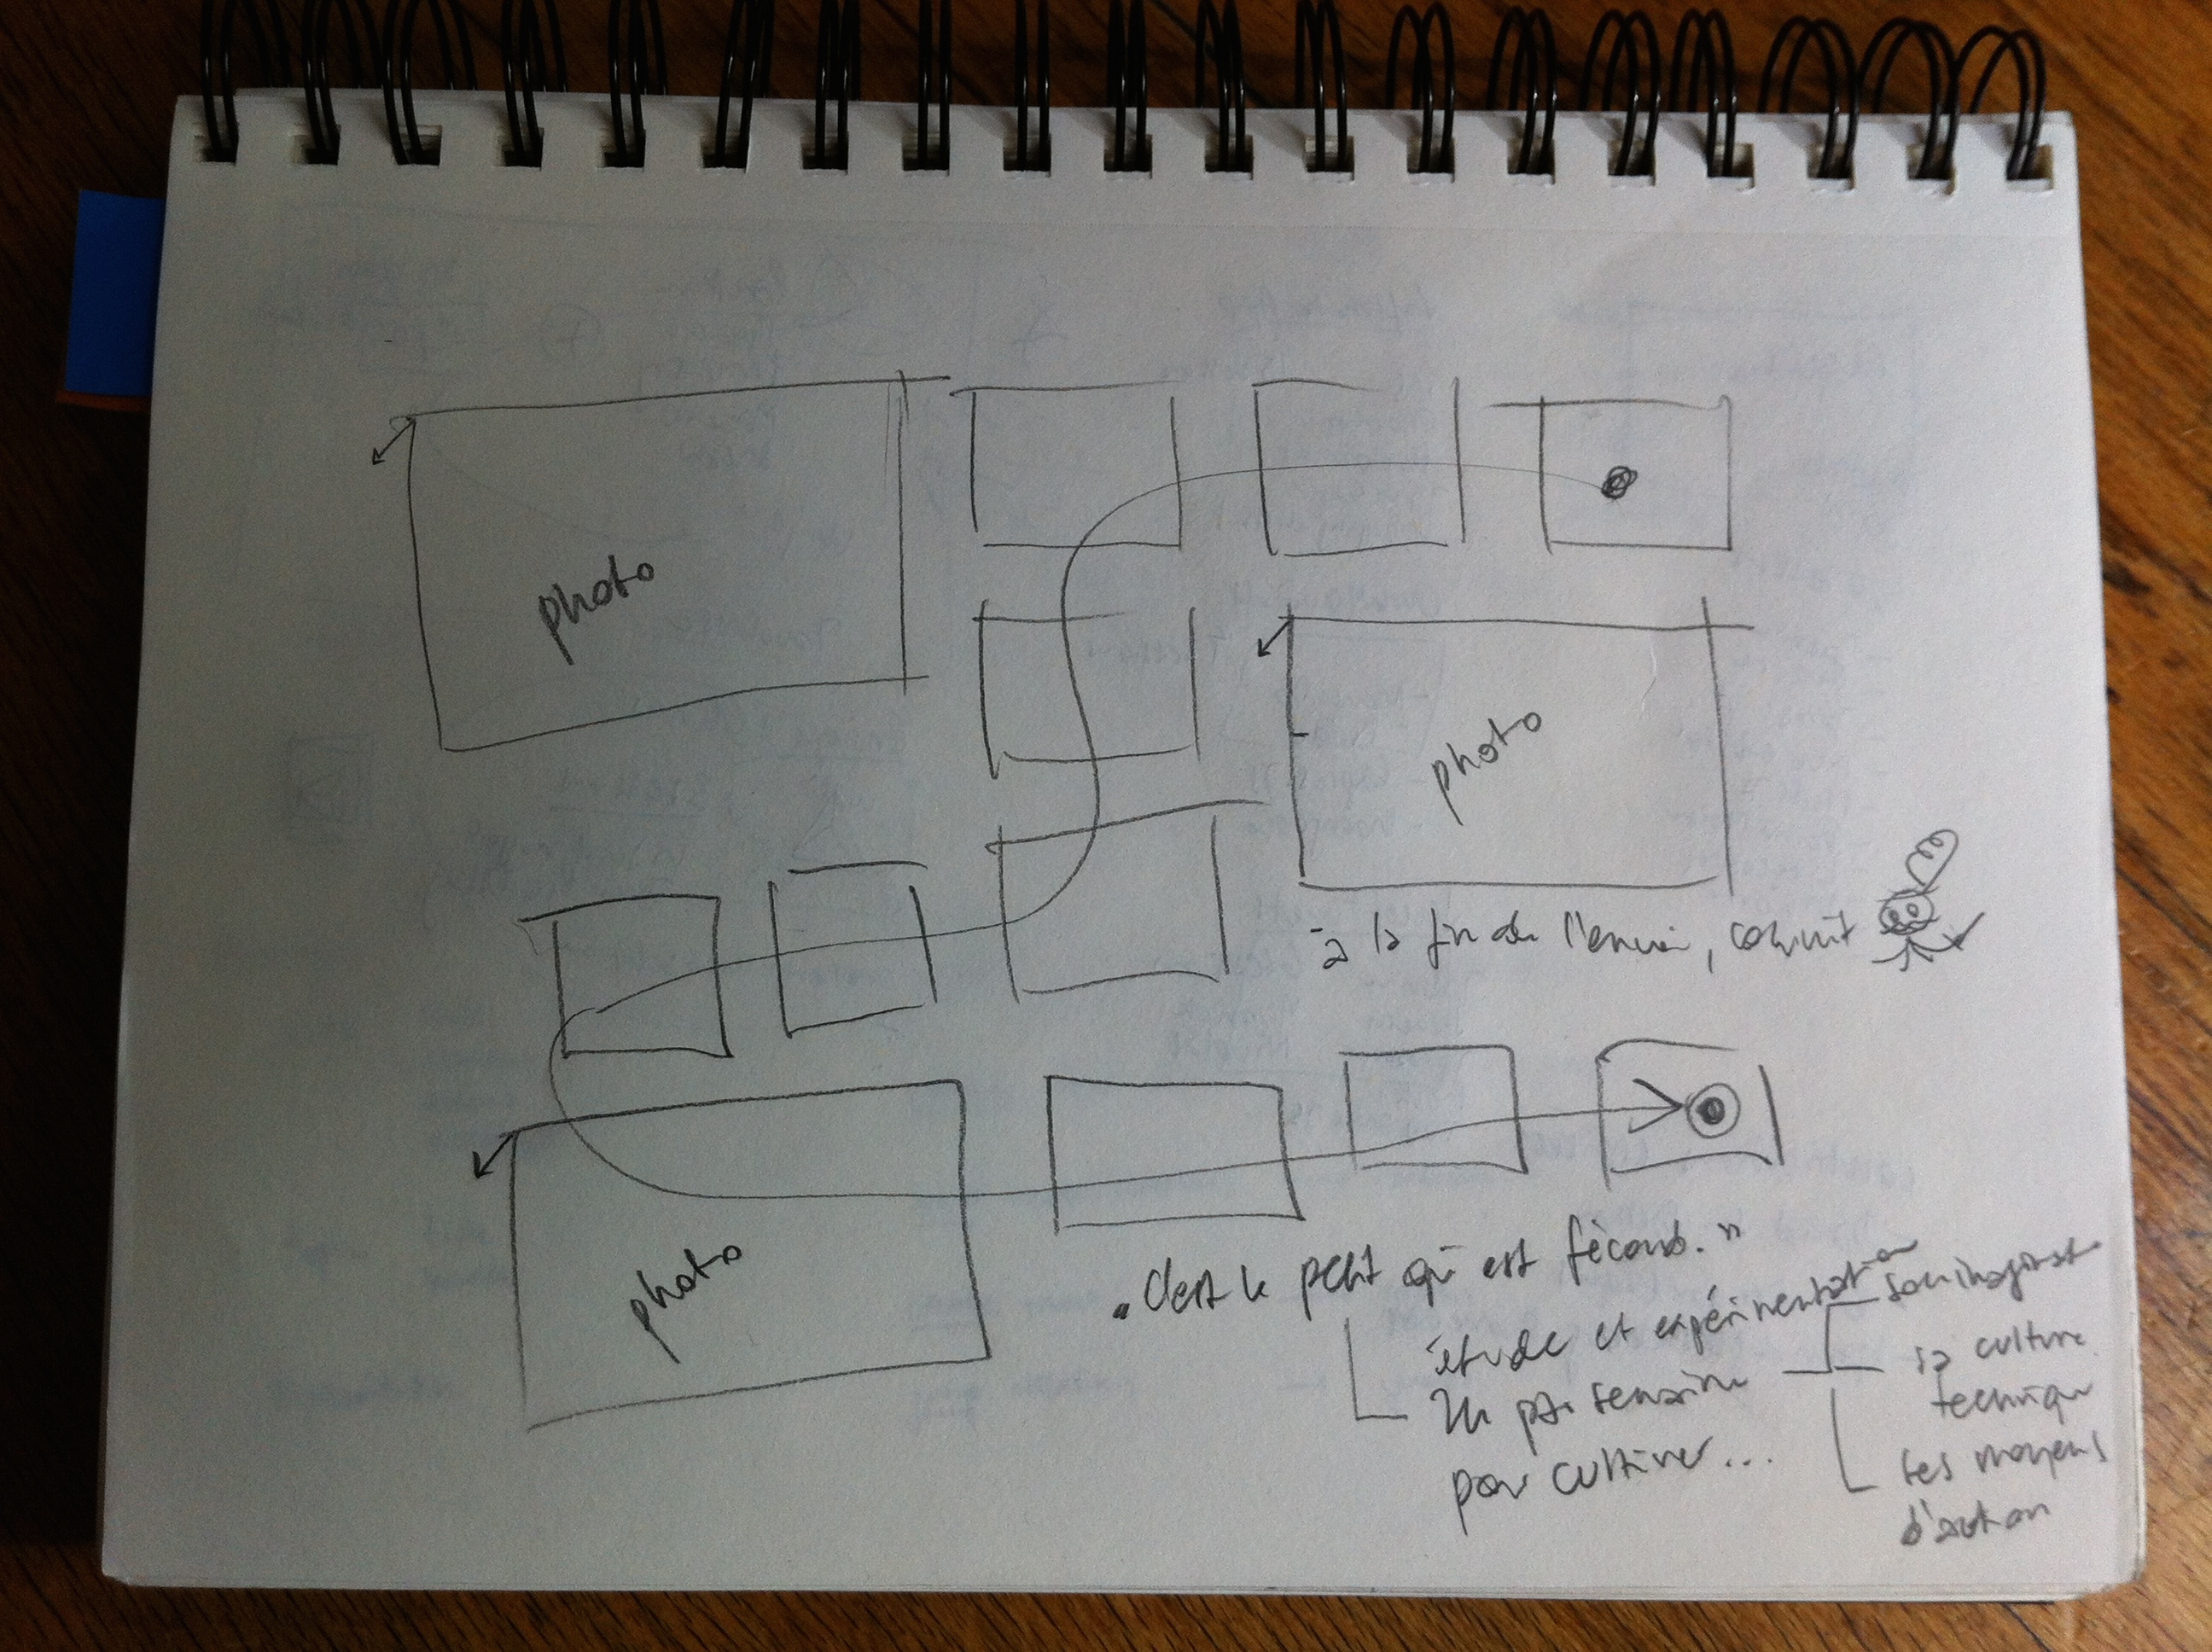 photo
photo
à la fin de l'ennui,
photo
"C'est le petit qui est fécond."
étude et expérimentation
Un partenaire
pour cultiver...
son imaginat
sa culture
technique
ses moyens
d'action